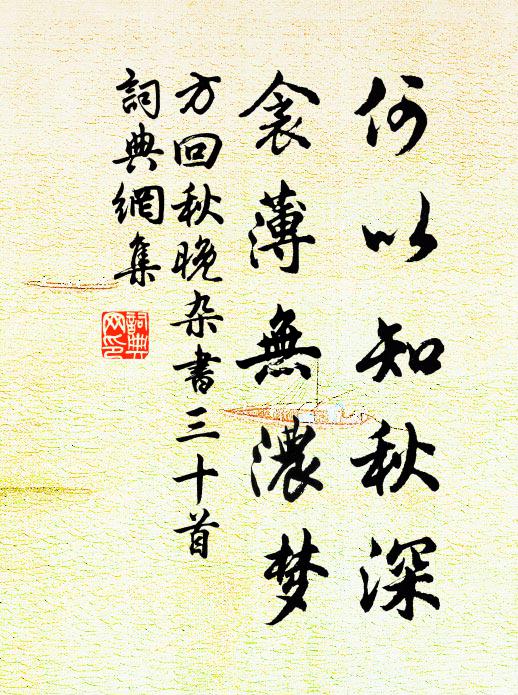 何以知秋深
衾薄無濃梦
方回秋晚杂書三十首
詞典網集
詞典
网印